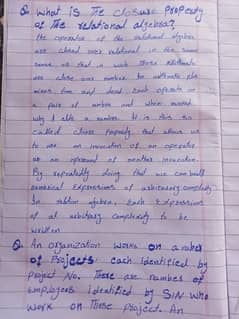 Q. What is The closure Property
of The relational algebra?
The operators of the relational algebra
are closed over relational in the same
sense as that is such those arithmatic
are close over number be arithmatic
minus time and Each operate on
a pair of number and when
why I able a number. It is this so
called close Property that allows us
to use an invocation of an operator
as an operand of another invocation.
By repeatedly doing that we can build
Expressions of arbitrary complexity
In relation algebra, Each Expressions
of at arbitrary complexity to be
written
Q. An organization works on a number
of Projects. each Identified by
Project No. There are number of
employees Identified by SIN who
work on These Project. An